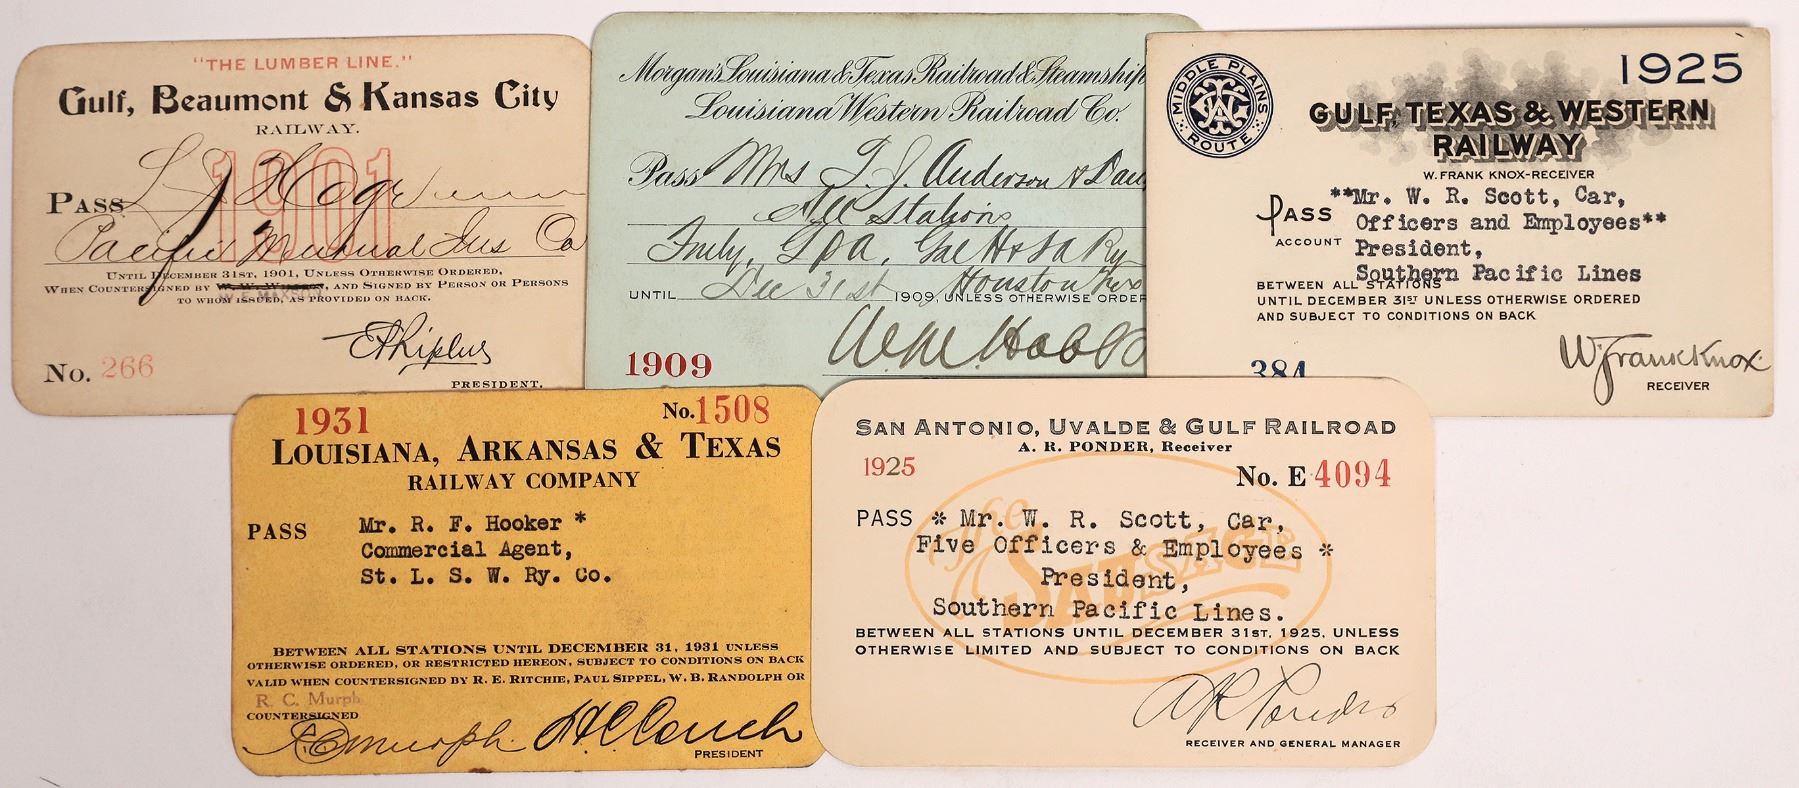 "THE LUMBER LINE."
Gulf, Beaumont & Kansas City
RAILWAY.
1901
PASS
Pacific Mutual Ins Co
UNTIL DECEMBER 31ST, 1901, UNLESS OTHERWISE ORDERED,
WHEN COUNTERSIGNED BY AND SIGNED BY PERSON OR PERSONS
TO WHOM ISSUED, AS PROVIDED ON BACK.
No. 266
PRESIDENT.
Morgan's Louisiana & Texas Railroad & Steamship
Louisiana Western Railroad Co.
Pass Mrs T. J. Anderson &
All Stations
G P A, G H & S A Ry
UNTIL Dec 31st 1909, UNLESS OTHERWISE ORDER
Houston
1909
MIDDLE PLAINS ROUTE
1925
GULF, TEXAS & WESTERN
RAILWAY
W. FRANK KNOX-RECEIVER
PASS **Mr. W. R. Scott, Car,
Officers and Employees**
ACCOUNT President,
Southern Pacific Lines
BETWEEN ALL STATIONS
UNTIL DECEMBER 31ST UNLESS OTHERWISE ORDERED
AND SUBJECT TO CONDITIONS ON BACK
384
W. Frank Knox
RECEIVER
1931
No. 1508
LOUISIANA, ARKANSAS & TEXAS
RAILWAY COMPANY
PASS Mr. R. F. Hooker *
Commercial Agent,
St. L. S. W. Ry. Co.
BETWEEN ALL STATIONS UNTIL DECEMBER 31, 1931 UNLESS
OTHERWISE ORDERED, OR RESTRICTED HEREON, SUBJECT TO CONDITIONS ON BACK
VALID WHEN COUNTERSIGNED BY R. E. RITCHIE, PAUL SIPPEL, W. B. RANDOLPH OR
R. C. Murph
COUNTERSIGNED
R C Murph H C Couch
PRESIDENT
SAN ANTONIO, UVALDE & GULF RAILROAD
A. R. PONDER, Receiver
1925
No. E 4094
The SAUSAGE
PASS * Mr. W. R. Scott, Car,
Five Officers & Employees *
President,
Southern Pacific Lines.
BETWEEN ALL STATIONS UNTIL DECEMBER 31ST, 1925, UNLESS
OTHERWISE LIMITED AND SUBJECT TO CONDITIONS ON BACK
A R Ponder
RECEIVER AND GENERAL MANAGER